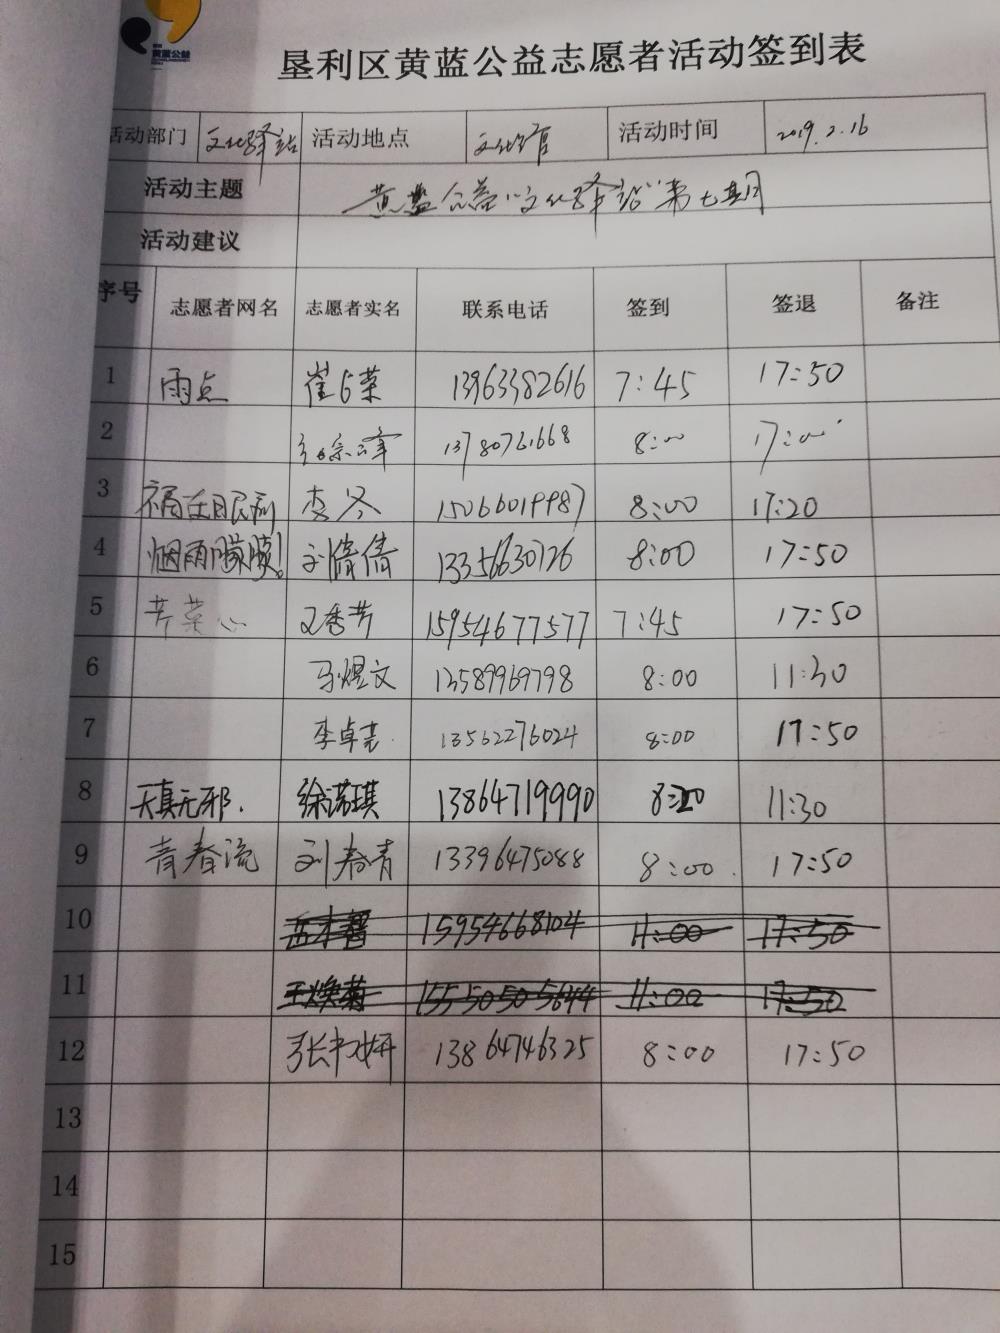 黄蓝公益
垦利区黄蓝公益志愿者活动签到表
活动部门 文化驿站 活动地点 文化馆 活动时间 2019.2.16
活动主题 黄蓝公益"文化驿站"第七期
活动建议
序号 志愿者网名 志愿者实名 联系电话 签到 签退 备注
1 雨点 崔占荣 13963382616 7:45 17:50
2 13780761668 8:00 17:00
3 李冬 15066019987 8:00 17:20
4 烟雨朦胧! 刘倩倩 13356630726 8:00 17:50
5 芳菜心 15954677577 7:45 17:50
6 马煜文 13589969798 8:00 11:30
7 李卓芸 13562276024 8:00 17:50
8 天真无邪. 徐诺琪 13864719990 8:20 11:30
9 青春流 刘春青 13396475088 8:00. 17:50
10 15954668104 11:00 17:50
11 王焕菊 15550505644 11:00 17:50
12 13864746325 8:00 17:50
13
14
15